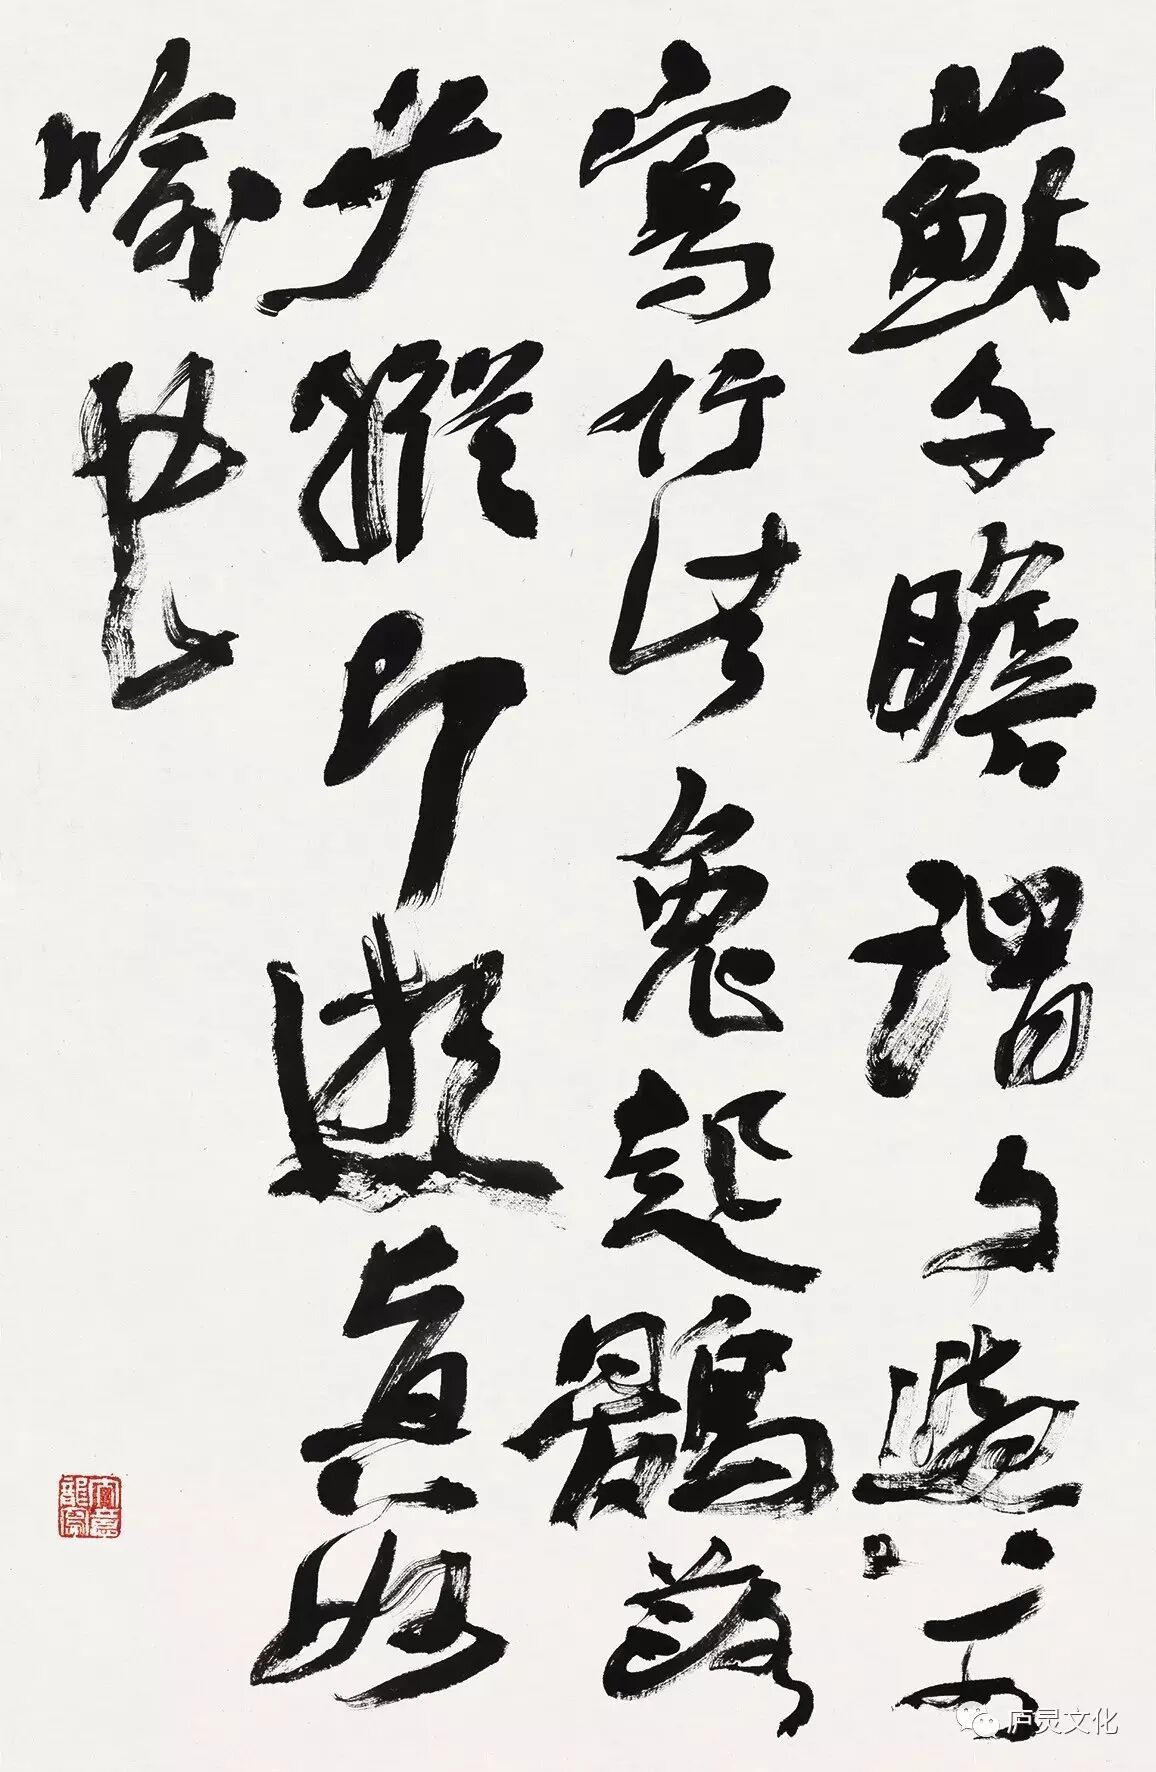 蘇子瞻謂文與可
寫竹法兔起鶻落
少縱即逝真妙
喻也
庐灵文化